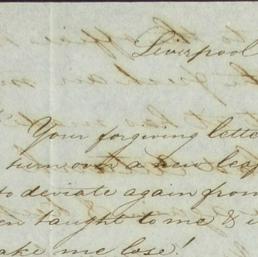 Liverpool
Your forgiving lette
turn over a new leaf
to deviate again from
en taught to me & i
ake me lose!